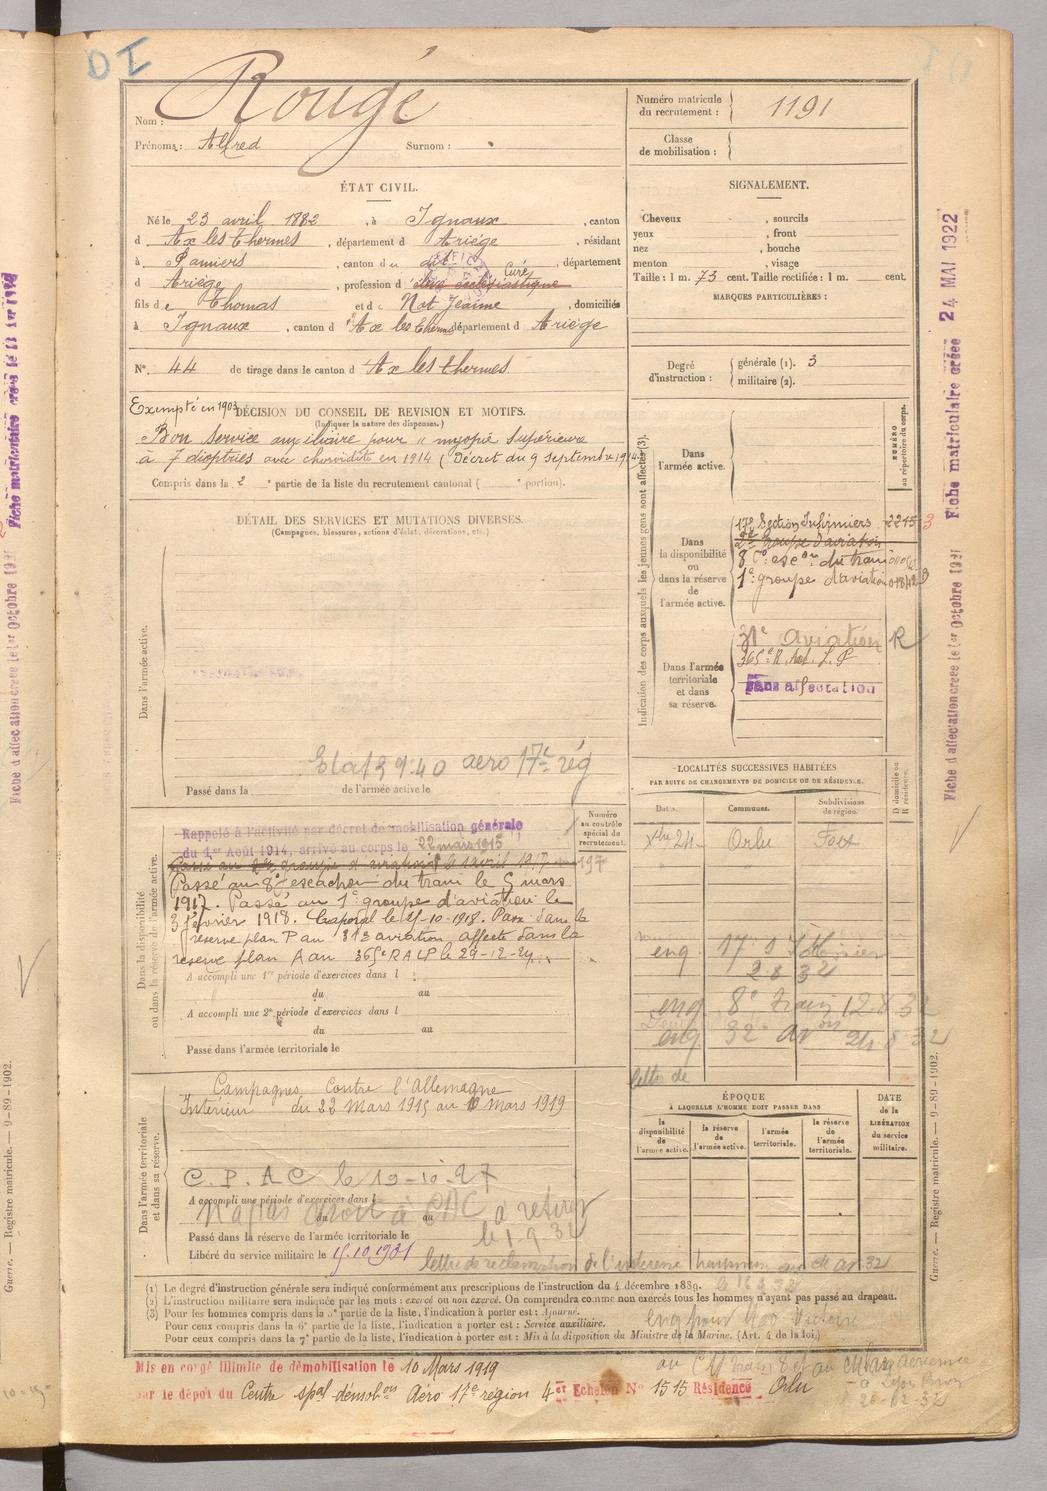 DI
Nom : Rougé
Prénoms : Alfred Surnom :
Numéro matricule du recrutement : 1191
Classe de mobilisation :
ÉTAT CIVIL.
Né le 23 avril 1882, à Ignaux, canton
d Ax les Thermes, département d Ariège, résidant
à Pamiers, canton du dit, département
d Ariège, profession d Curé
fils de Thomas et de Not Jeanne, domiciliés
à Ignaux, canton d'Ax les Thermes département d Ariège
N° 44 de tirage dans le canton d'Ax les Thermes
SIGNALEMENT.
Cheveux , sourcils
yeux , front
nez , bouche
menton , visage
Taille : 1 m. 73 cent. Taille rectifiée : 1 m. cent.
MARQUES PARTICULIÈRES :
Degré d'instruction : générale (1). 3
militaire (2).
Exempté en 1903
DÉCISION DU CONSEIL DE REVISION ET MOTIFS.
(Indiquer la nature des dispenses.)
Bon Service auxiliaire pour " myopie supérieure
à 7 dioptries avec choroïdite en 1914 (Décret du 9 septembre 1914
Compris dans la 2 e partie de la liste du recrutement cantonal ( e portion).
DÉTAIL DES SERVICES ET MUTATIONS DIVERSES.
(Campagnes, blessures, actions d'éclat, décorations, etc.)
Dans l'armée active.
aero 17e rég
Passé dans la de l'armée active le
Indication des corps auxquels les jeunes gens sont affectés (3).
NUMÉRO au répertoire du corps.
Dans l'armée active.
Dans la disponibilité ou dans la réserve de l'armée active.
17e Section Infirmiers 2215
2e groupe d'aviation
8e escon du train
1e groupe d'aviation
Dans l'armée territoriale et dans sa réserve.
31e aviation R
365e R. Art. L. P
Sans affectation
LOCALITÉS SUCCESSIVES HABITÉES
PAR SUITE DE CHANGEMENTS DE DOMICILE OU DE RÉSIDENCE.
Dates. Communes. Subdivisions de région. D domicile ou R résidence.
Xbre 24 Orlu Foix
Dans la disponibilité ou dans la réserve de l'armée active.
Numéro au contrôle spécial du recrutement.
Rappelé à l'activité par décret de mobilisation générale
du 1er Août 1914, arrivé au corps le 22 mars 1915
Passé au 2e groupe d'aviation le 1 avril 1917
197
Passé au 8e escadron du train le 5 mars
1917. Passé au 1e groupe d'aviation le
3 février 1918. Caporal le 21-10-1918. Passé dans la
réserve plan P au 313 aviation affecté dans la
réserve plan A au 365e RALP le 29-12-24
A accompli une 1re période d'exercices dans l
du au
A accompli une 2e période d'exercices dans l
du au
Passé dans l'armée territoriale le
enq. 17e S
2 8 32
enq. 8e Train 12 8 32
enq. 32e Avon 24 8 32
lettre de
Dans l'armée territoriale et dans sa réserve.
Campagnes contre l'Allemagne
Intérieur du 22 Mars 1915 au 10 Mars 1919
C. P. A. C le 19-10-27
A accompli une période d'exercices dans l
N'a pas droit à CAC a retirer
du au
Passé dans la réserve de l'armée territoriale le
le 1.9.32
Libéré du service militaire le 15.10.1931
lettre de réclamation de l'intéressé
ÉPOQUE
À LAQUELLE L'HOMME DOIT PASSER DANS
la disponibilité de l'armée active. la réserve de l'armée active. l'armée territoriale. la réserve de l'armée territoriale.
DATE de la LIBÉRATION du service militaire.
(1) Le degré d'instruction générale sera indiqué conformément aux prescriptions de l'instruction du 4 décembre 1889.
(2) L'instruction militaire sera indiquée par les mots : exercé ou non exercé. On comprendra comme non exercés tous les hommes n'ayant pas passé au drapeau.
(3) Pour les hommes compris dans la 5e partie de la liste, l'indication à porter est : Ajourné.
Pour ceux compris dans la 6e partie de la liste, l'indication à porter est : Service auxiliaire.
Pour ceux compris dans la 7e partie de la liste, l'indication à porter est : Mis à la disposition du Ministre de la Marine. (Art. 4 de la loi.)
Mis en congé illimité de démobilisation le 10 Mars 1919
par le dépôt du Centre spal démobon Aéro 17e région 4er Echelon N° 1515 Résidence Orlu
26-02-32
Fiche d'affectation créée le 1er Octobre 1921
Fiche matriculaire créée 24 MAI 1922
Guerre. — Registre matricule. — 9-89-1902.